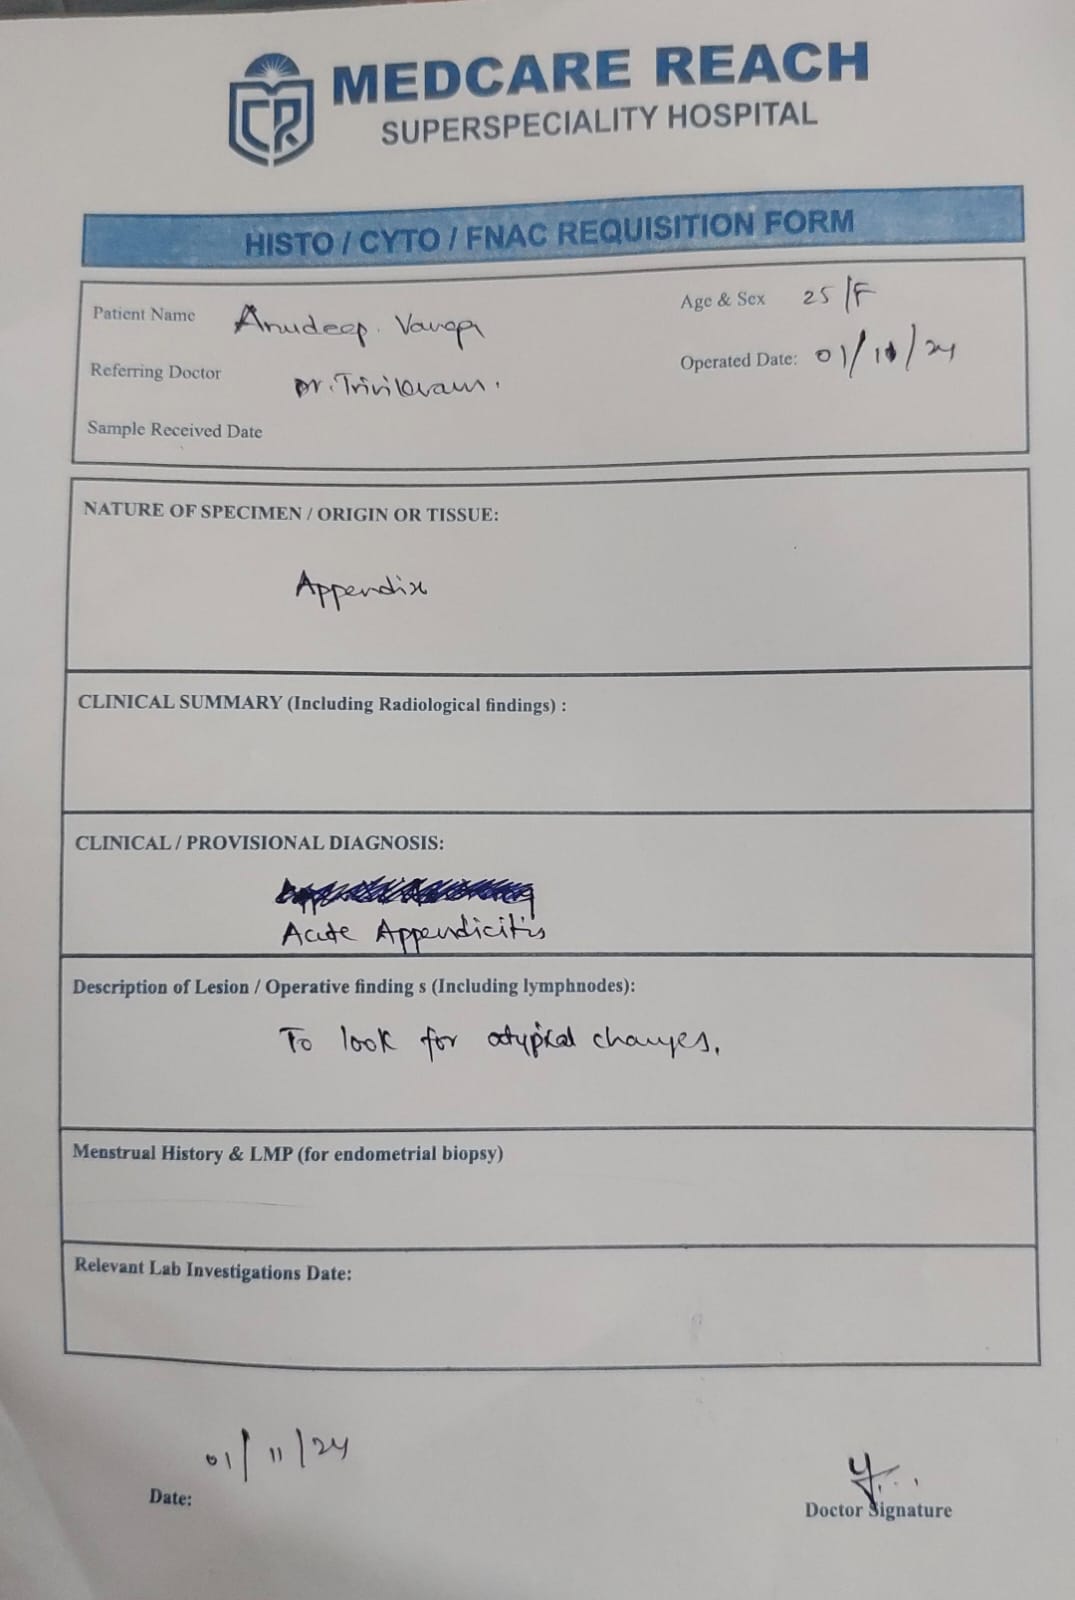 MEDCARE REACH
SUPERSPECIALITY HOSPITAL
HISTO / CYTO / FNAC REQUISITION FORM
Patient Name Anudeep
Age & Sex 25/F
Referring Doctor Dr. Trivikram.
Operated Date: 01/11/24
Sample Received Date
NATURE OF SPECIMEN / ORIGIN OR TISSUE:
Appendix
CLINICAL SUMMARY (Including Radiological findings) :
CLINICAL / PROVISIONAL DIAGNOSIS:
Acute Appendicitis
Description of Lesion / Operative finding s (Including lymphnodes):
To look for atypical changes.
Menstrual History & LMP (for endometrial biopsy)
Relevant Lab Investigations Date:
01/11/24
Date:
Doctor Signature